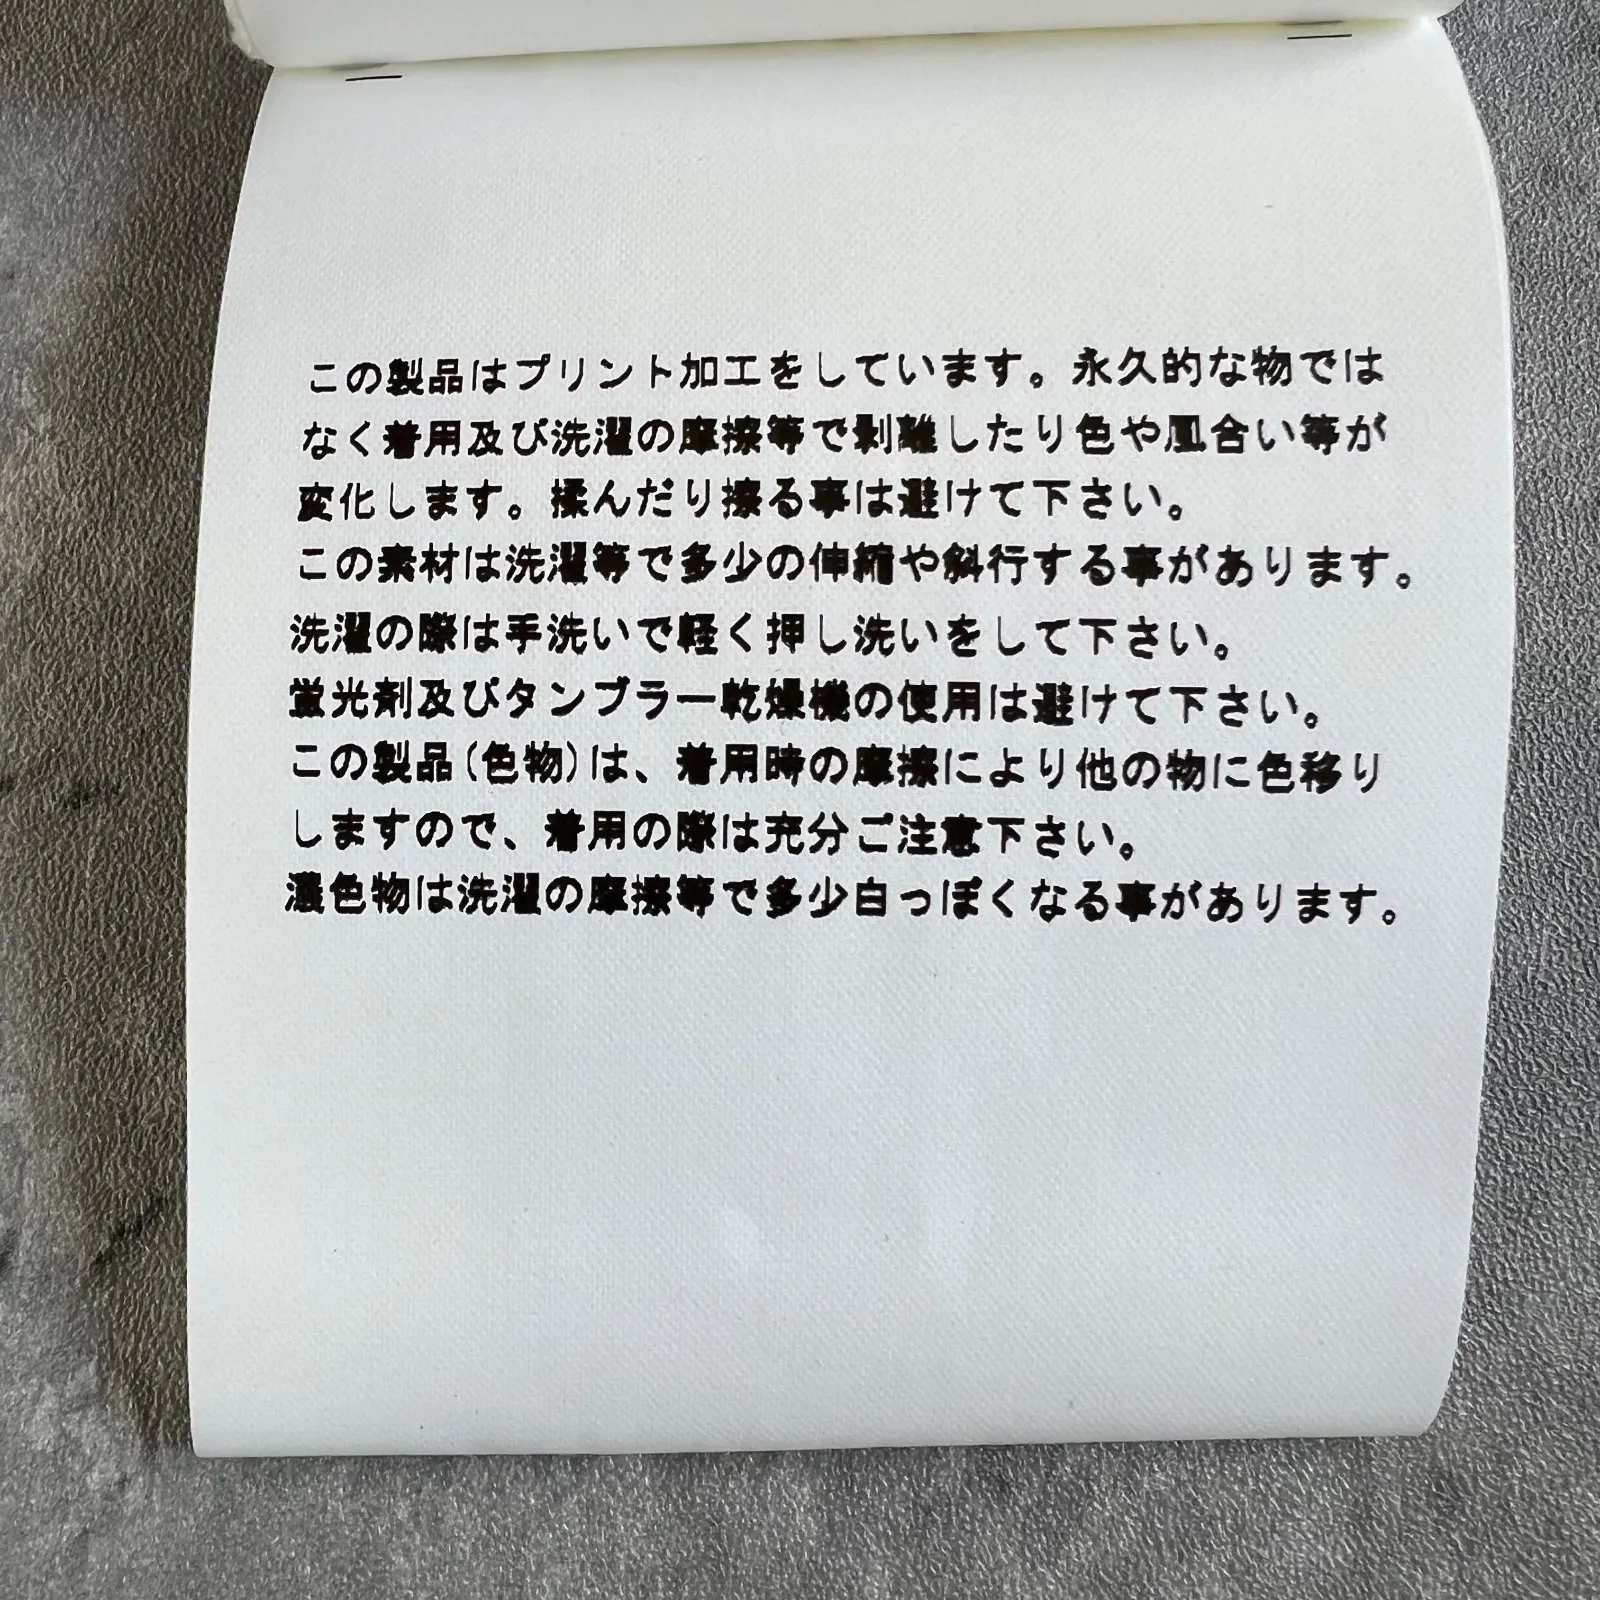 この製品はプリント加工をしています。永久的な物では
なく着用及び洗濯の摩擦等で剥離したり色や風合い等が
変化します。揉んだり擦る事は避けて下さい。
この素材は洗濯等で多少の伸縮や斜行する事があります。
洗濯の際は手洗いで軽く押し洗いをして下さい。
蛍光剤及びタンブラー乾燥機の使用は避けて下さい。
この製品(色物)は、着用時の摩擦により他の物に色移り
しますので、着用の際は充分ご注意下さい。
濃色物は洗濯の摩擦等で多少白っぽくなる事があります。